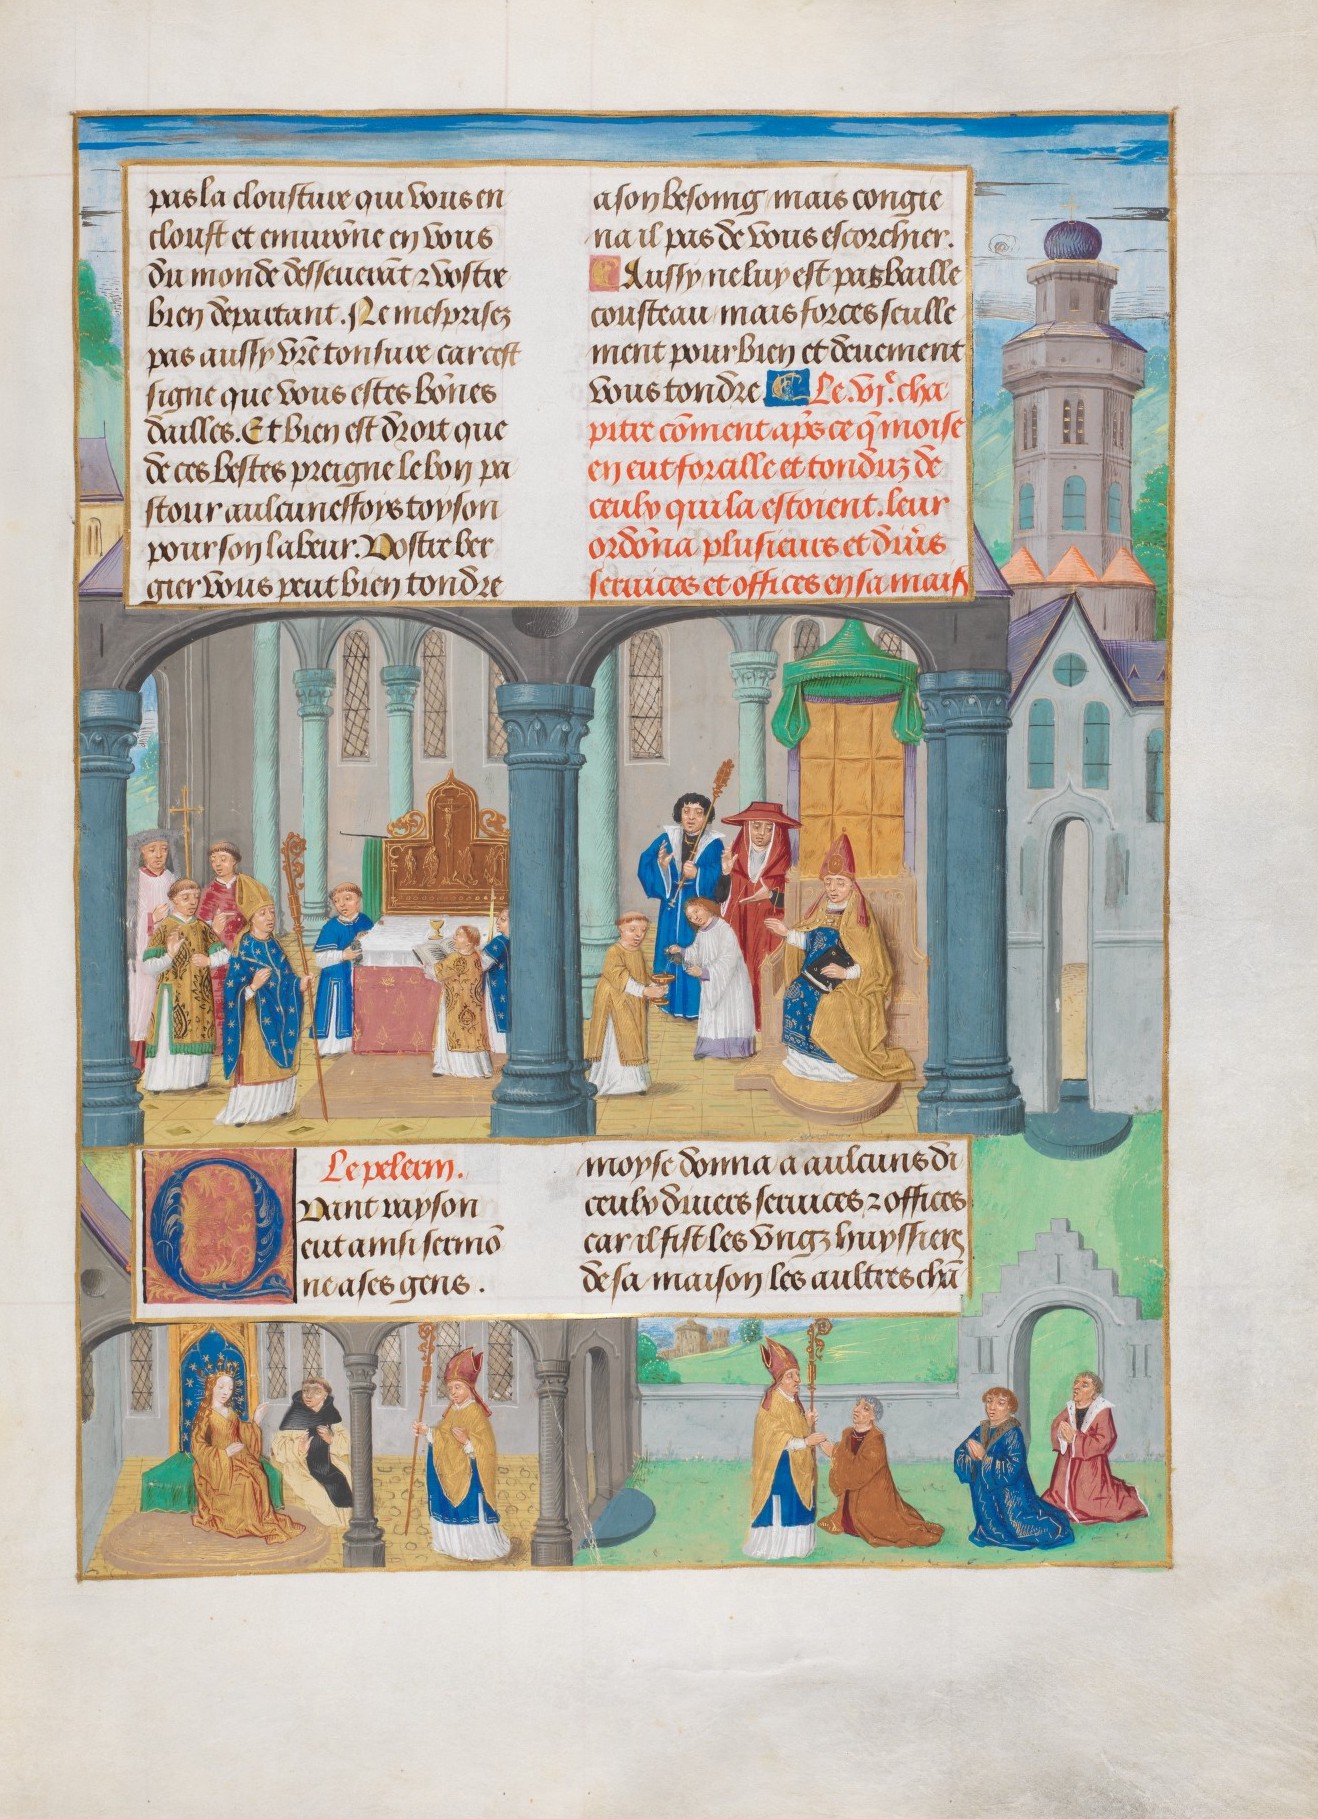 pas la closture qui vous en
cloust et emuirōne en vous
du monde desseuerāt ⁊ vostre
bien departant. Ne mesprisez
pas aussy vr̄e tonsure car cest
signe que vous estes bōnes
dailles. Et bien est droit que
de ces bestes preigne le bon pa
stour aulcuneffoys toyson
pour son labeur. Vostre ber
gier vous peut bien tondre
a son besoing mais congie
na il pas de vous escorchier.
Aussy ne luy est pas baille
cousteau mais forces seulle
ment pour bien et deuement
vous tondre Le .vjᵉ. cha
pitre cōment ap̄s ce q̄ moise
en eut forcille et tonduz de
ceulx qui la estoient. leur
ordōna plusieurs et diuers
seruices et offices en sa maisō
Le pelerin.
Quant rayson
eut ainsi sermō
ne a ses gens.
moyse donna a aulcuns di
ceulx diuers seruices ⁊ offices
car il fist les vngz huyssiers
de sa maison les aultres chā